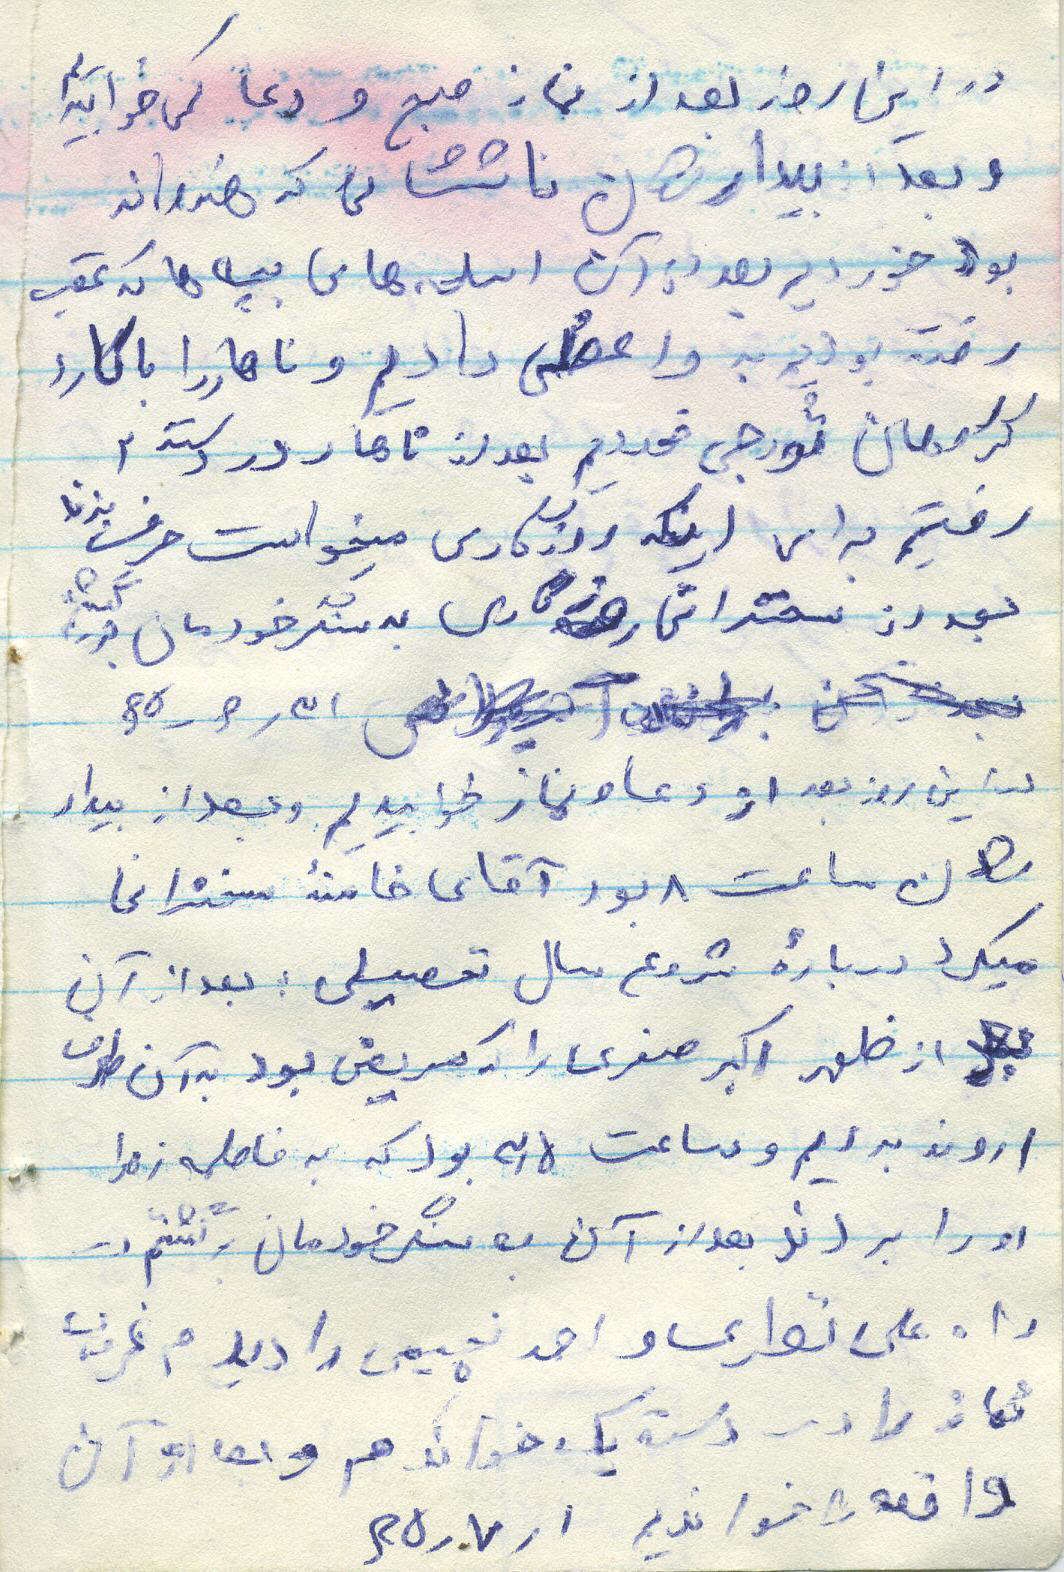 در این روز بعد از نماز صبح و دعا کمی خوابیدیم
و بعد از بیدار شدن ناشتایی که هندوانه
بود خوردیم بعد از آن اسلحه های بچه ها که عقب
رفته بودند به واعظی دادیم و ناهار را با کارد
کرامهان تورجی خوردیم بعد از ناهار در دسته ۲
رفتیم برای اینکه روزگاری میخواست حرف بزند
بعد از سخنرانی روزگاری به سنگر خودمان برگشتیم
۳۱ر۶ر۶۵
در این روز بعد از دعا و نماز خوابیدیم و بعد از بیدار
شدن ساعت ۸ بود آقای خامنهٔ سخنرانی
میکرد دربارهٔ شروع سال تحصیلی ؛ بعد از آن
بعد از ظهر اکبر صفری را که مریض بود به آن طرف
اروند بردیم و ساعت بود که به فاطمه زهرا
او را بردند بعد از آن به سنگر خودمان برگشتیم در
راه علی و احمد نعیمی را دیدم
نماز را در دسته یک خواندم و بعد از آن
واقعه خواندیم ۱ر۷ر۶۵